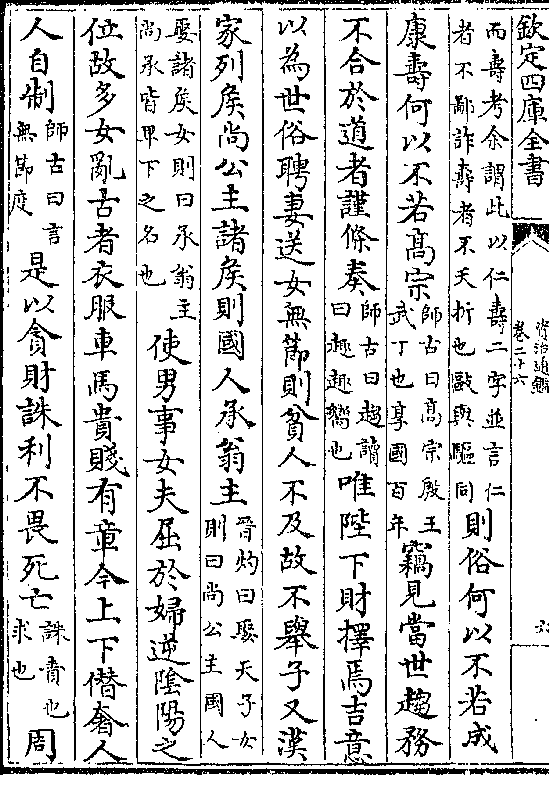 欽定四庫全書
資治通鑑
卷二十六
六
而壽考余謂此以仁壽二字並言仁
者不鄙詐壽者不夭折也敺與驅同
則俗何以不若成
康壽何以不若髙宗
師古曰髙宗殷王
武丁也享國百年
竊見當世趨務
不合於道者謹條奏
師古曰趨讀
曰趣趣嚮也
唯陛下財擇焉吉意
以為世俗聘妻送女無節則貧人不及故不舉子又漢
家列侯尚公主諸侯則國人承翁主
晉灼曰娶天子女
則曰尚公主國人
娶諸侯女則曰承翁主
尚承皆卑下之名也
使男事女夫屈於婦逆陰陽之
位故多女亂古者衣服車馬貴賤有章今上下僭奢人
人自制
師古曰言
無節度
是以貪財誅利不畏死亡
誅責也
求也
周